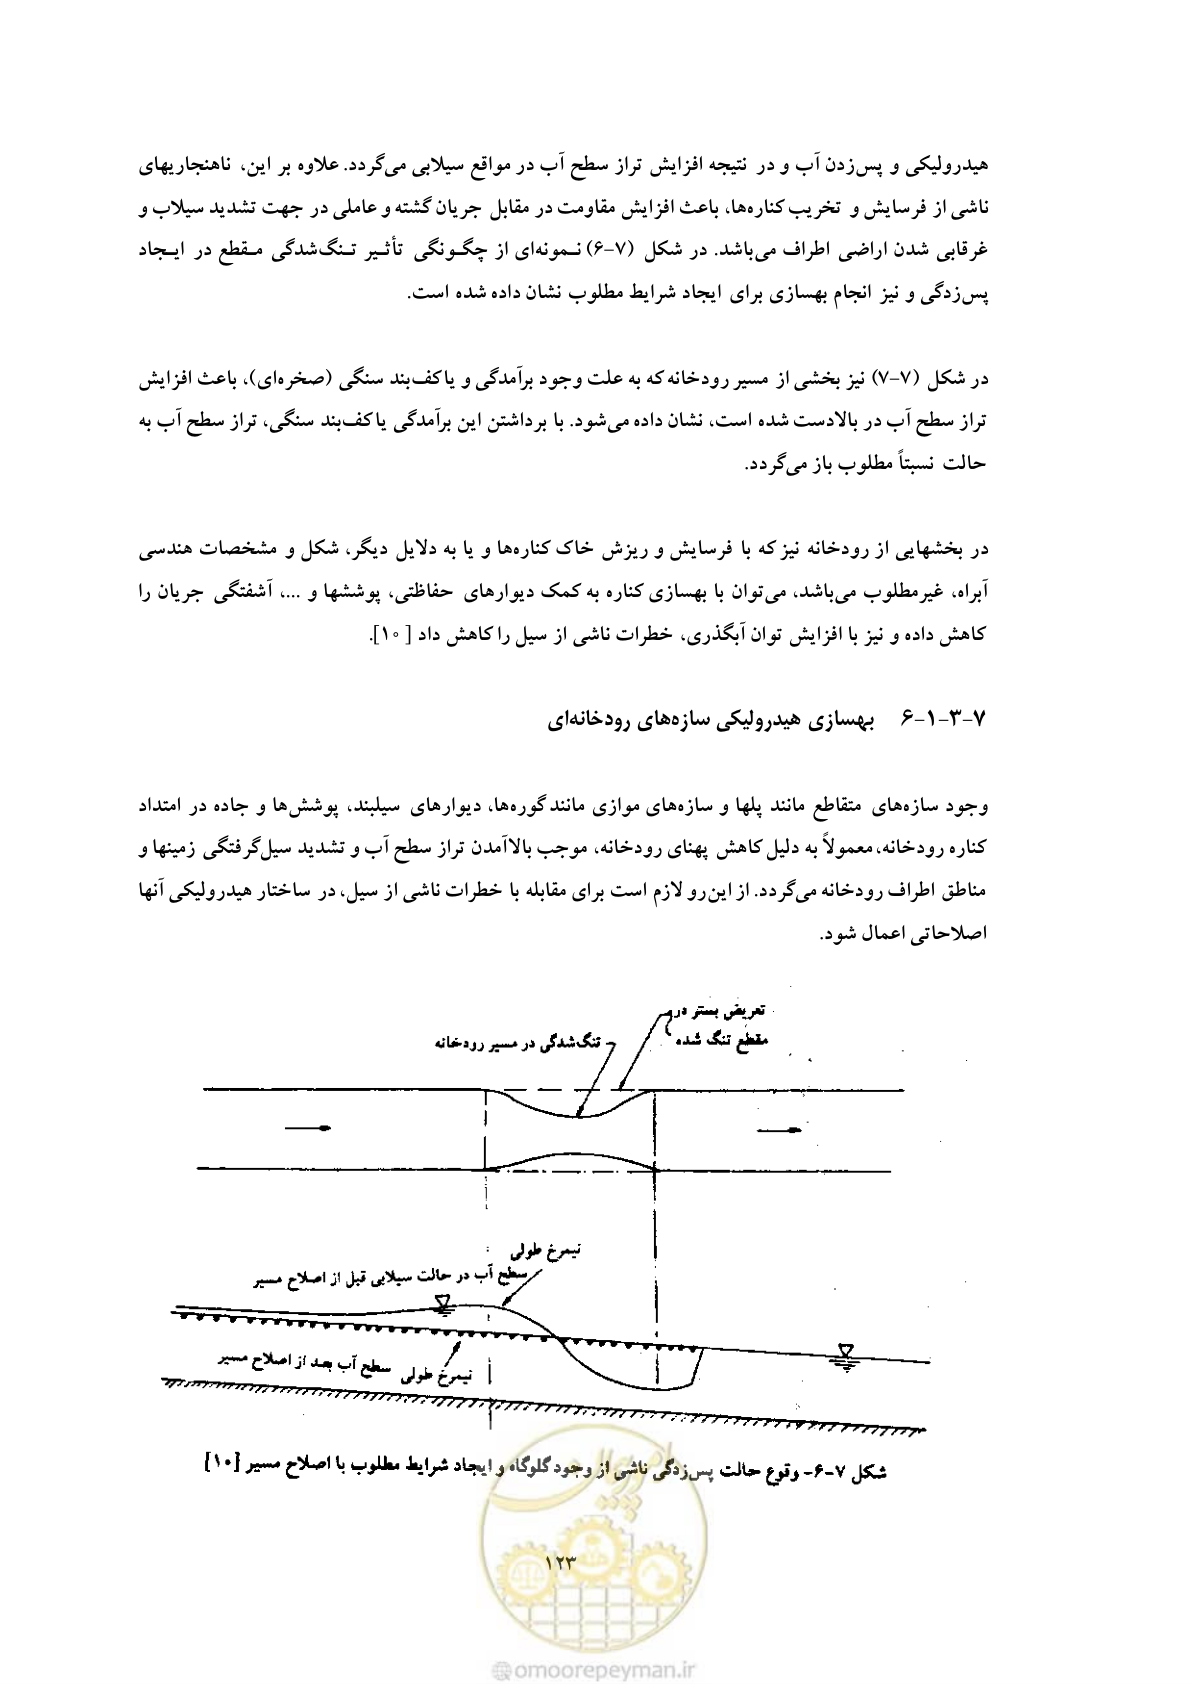 هیدرولیکی و پس‌زدن آب و در نتیجه افزایش تراز سطح آب در مواقع سیلابی می‌گردد. علاوه بر این، ناهنجاریهای
ناشی از فرسایش و تخریب کناره‌ها، باعث افزایش مقاومت در مقابل جریان گشته و عاملی در جهت تشدید سیلاب و
غرقابی شدن اراضی اطراف می‌باشد. در شکل (۷-۶) نـمونه‌ای از چگـونگی تأثـیر تـنگ‌شدگی مـقطع در ایـجاد
پس‌زدگی و نیز انجام بهسازی برای ایجاد شرایط مطلوب نشان داده شده است.
در شکل (۷-۷) نیز بخشی از مسیر رودخانه که به علت وجود برآمدگی و یا کف‌بند سنگی (صخره‌ای)، باعث افزایش
تراز سطح آب در بالادست شده است، نشان داده می‌شود. با برداشتن این برآمدگی یا کف‌بند سنگی، تراز سطح آب به
حالت نسبتاً مطلوب باز می‌گردد.
در بخشهایی از رودخانه نیز که با فرسایش و ریزش خاک کناره‌ها و یا به دلایل دیگر، شکل و مشخصات هندسی
آبراه، غیرمطلوب می‌باشد، می‌توان با بهسازی کناره به کمک دیوارهای حفاظتی، پوششها و ...، آشفتگی جریان را
کاهش داده و نیز با افزایش توان آبگذری، خطرات ناشی از سیل را کاهش داد [۱۰].
۷-۳-۱-۶ بهسازی هیدرولیکی سازه‌های رودخانه‌ای
وجود سازه‌های متقاطع مانند پلها و سازه‌های موازی مانند گوره‌ها، دیوارهای سیلبند، پوشش‌ها و جاده در امتداد
کناره رودخانه، معمولاً به دلیل کاهش پهنای رودخانه، موجب بالاآمدن تراز سطح آب و تشدید سیل‌گرفتگی زمینها و
مناطق اطراف رودخانه می‌گردد. از این‌رو لازم است برای مقابله با خطرات ناشی از سیل، در ساختار هیدرولیکی آنها
اصلاحاتی اعمال شود.
تعریض بستر در
مقطع تنگ شده
تنگ‌شدگی در مسیر رودخانه
نیمرخ طولی
سطح آب در حالت سیلابی قبل از اصلاح مسیر
نیمرخ طولی سطح آب بعد از اصلاح مسیر
شکل ۷-۶- وقوع حالت پس‌زدگی ناشی از وجود گلوگاه و ایجاد شرایط مطلوب با اصلاح مسیر [۱۰]
امور پیمان
۱۲۳
omoorepeyman.ir